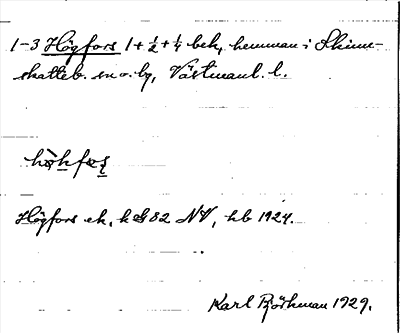 1-3 Högfors 1+½+¼ beb., hemman i Skinn-
skatteb. sn o. by, Västmanl. l.
Högfors ek. k bl 82 NV, hb 1924.
Karl Björkman 1929.